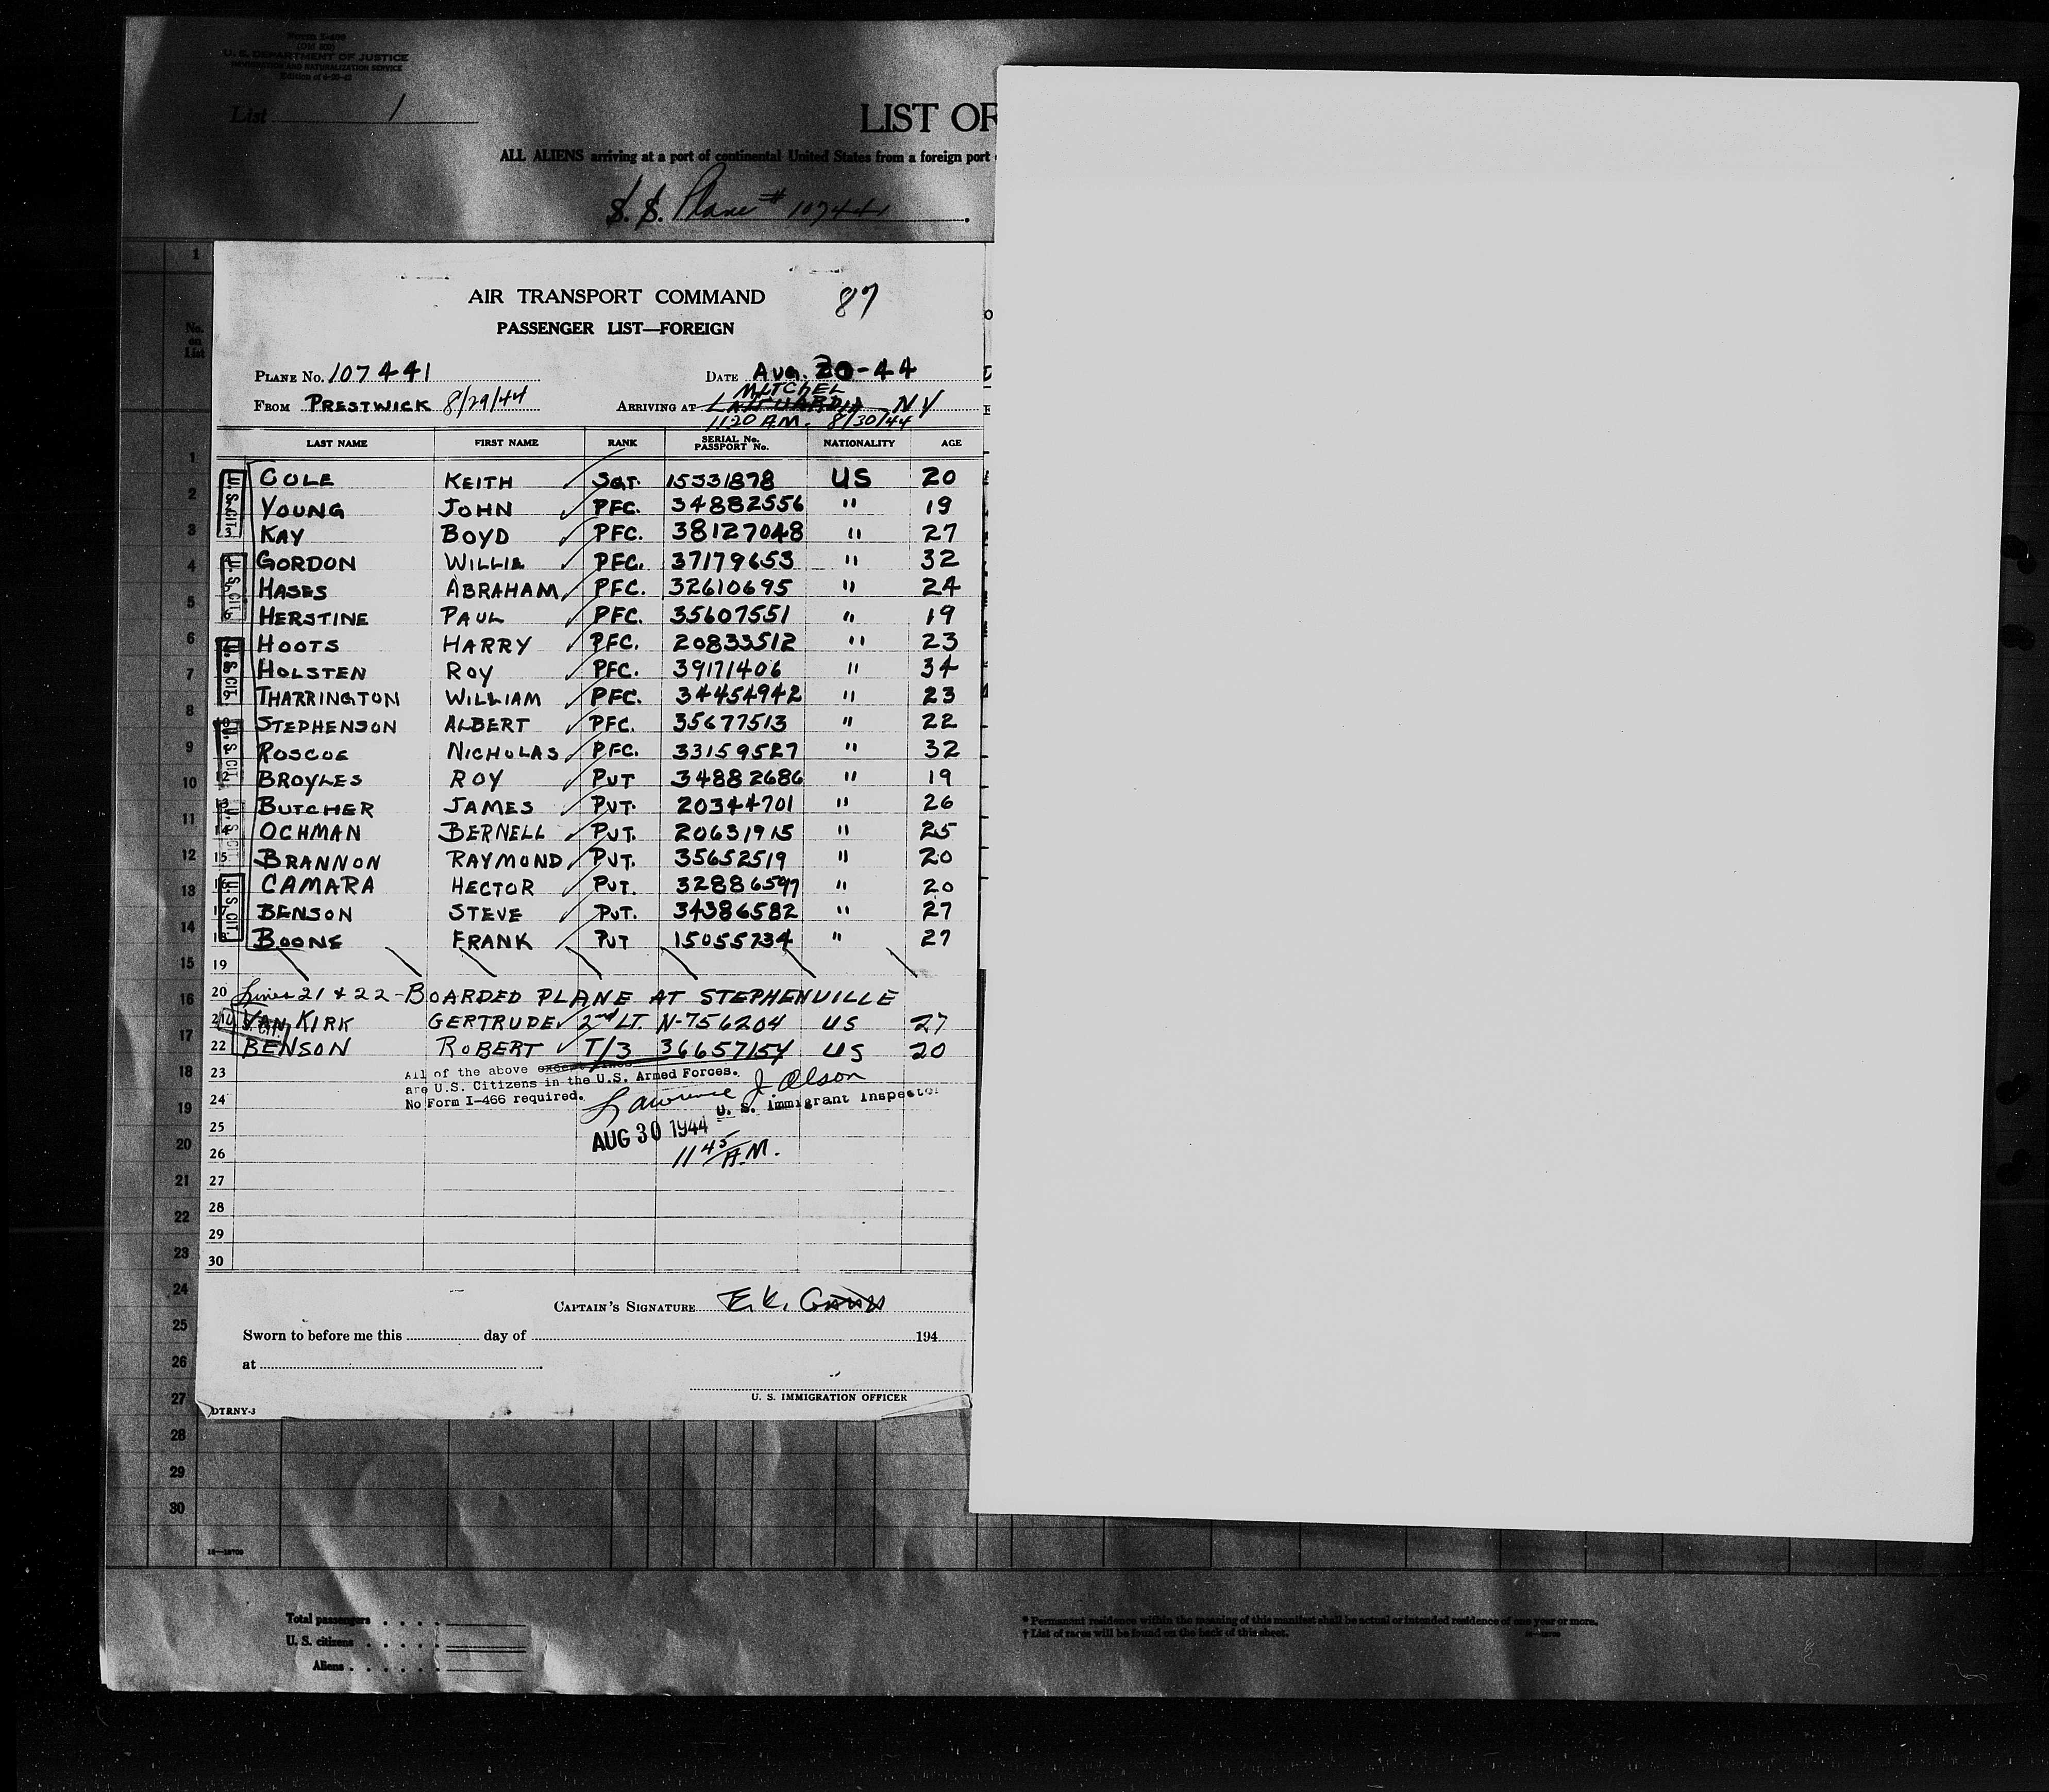 Form I-466
U. S. DEPARTMENT OF JUSTICE
IMMIGRATION AND NATURALIZATION SERVICE
List 1
LIST OF
ALL ALIENS arriving at a port of continental United States from a foreign port
S. S. Plane # 107441
No. on List
AIR TRANSPORT COMMAND 87
PASSENGER LIST—FOREIGN
PLANE No. 107441 DATE AUG. 30-44
MITCHEL
FROM PRESTWICK 8/29/44 ARRIVING AT LAGUARDIA NY
1120 A.M. 8/30/44
LAST NAME FIRST NAME RANK SERIAL No. PASSPORT No. NATIONALITY AGE
COLE KEITH SGT. 15331878 US 20
YOUNG JOHN PFC. 34882556 " 19
KAY BOYD PFC. 38127048 " 27
GORDON WILLIE PFC. 37179653 " 32
HASES ABRAHAM PFC. 32610695 " 24
HERSTINE PAUL PFC. 35607551 " 19
HOOTS HARRY PFC. 20833512 " 23
HOLSTEN ROY PFC. 39171406 " 34
THARRINGTON WILLIAM PFC. 34454942 " 23
STEPHENSON ALBERT PFC. 35677513 " 22
ROSCOE NICHOLAS PFC. 33159527 " 32
12 BROYLES ROY PVT 34882686 " 19
13 BUTCHER JAMES PVT. 20344701 " 26
14 OCHMAN BERNELL PVT. 20631915 " 25
15 BRANNON RAYMOND PVT. 35652519 " 20
16 CAMARA HECTOR PVT. 32886597 " 20
17 BENSON STEVE PVT. 34386582 " 27
18 BOONE FRANK PVT 15055734 " 27
19
20 Lines 21 & 22 - BOARDED PLANE AT STEPHENVILLE
21 VAN KIRK GERTRUDE 2nd LT. N-756204 US 27
22 BENSON ROBERT T/3 36657154 US 20
23 All of the above except lines
are U.S. Citizens in the U.S. Armed Forces.
24 No Form I-466 required. Lawrence J. Olson
U. S. Immigrant Inspector
25 AUG 30 1944
26 11 45 A.M.
27
28
29
30
CAPTAIN'S SIGNATURE E.K.
Sworn to before me this day of 194
at
U. S. IMMIGRATION OFFICER
DTRNY-3
28
29
30
16—18709
Total passengers
U. S. citizens
Aliens
* Permanent residence within the meaning of this manifest shall be actual or intended residence of one year or more.
† List of races will be found on the back of this sheet.